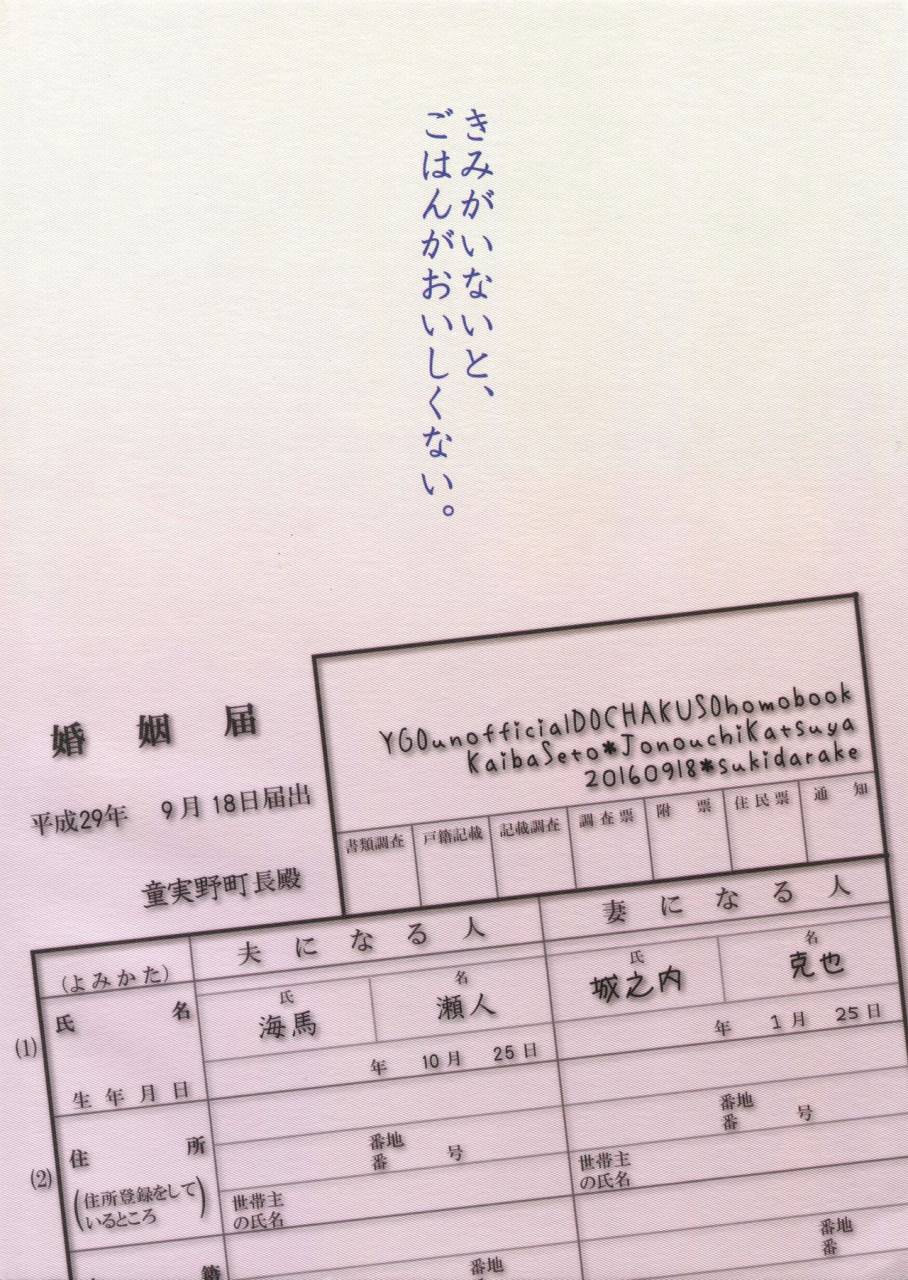 きみがいないと、
ごはんがおいしくない。
婚姻届
平成29年 9月18日届出
童実野町長殿
YGOunofficialDOCHAKUSOhomobook
KaibaSeto*JonouchiKatsuya
20160918*sukidarake
書類調査 戸籍記載 記載調査 調査票 附票 住民票 通知
夫になる人 妻になる人
(よみかた)
(1) 氏名 氏 海馬 名 瀬人 氏 城之内 名 克也
生年月日 年 10月 25日 年 1月 25日
(2) 住所 番地 番 号 番地 番 号
(住所登録をしているところ) 世帯主の氏名 世帯主の氏名
籍 番地 番 番地 番